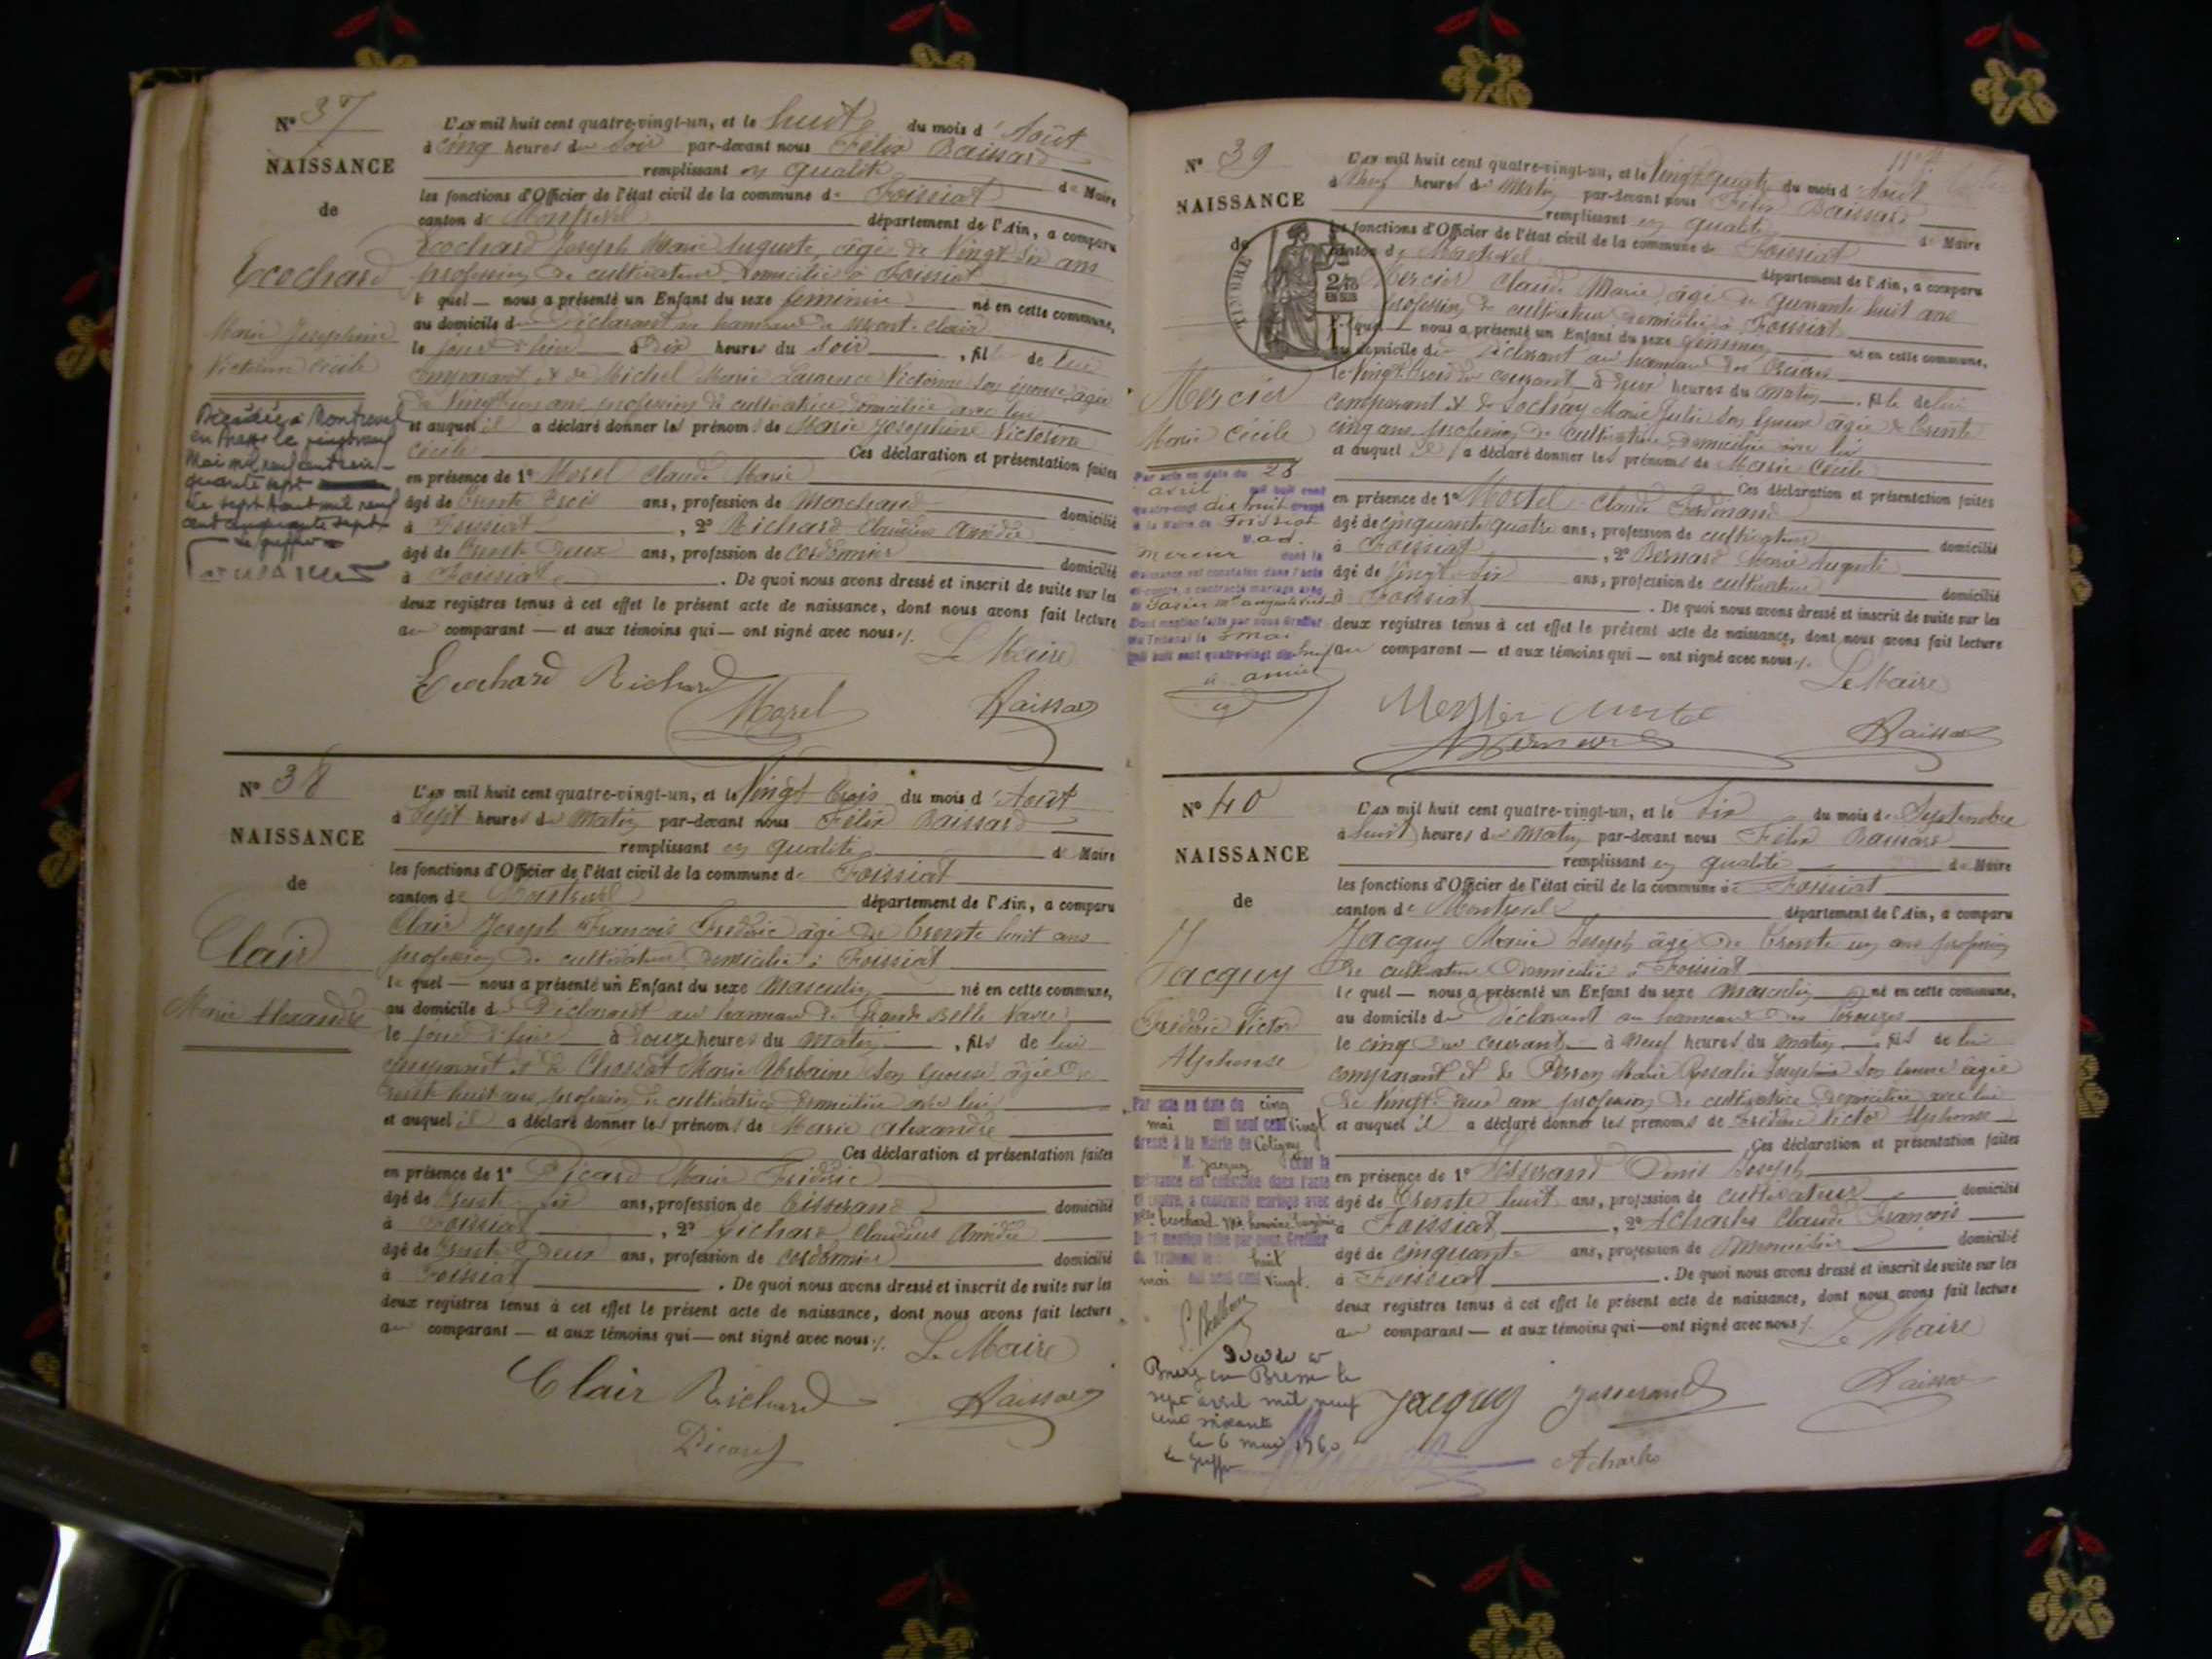 N° 37
NAISSANCE
de
Ecochard
Marie Josephine
Victorine Cécile
Décédée à Montrevel
en Bresse le vingt neuf
Mai mil neuf cent cin-
quante sept
Le sept Aout mil neuf
cent cinquante sept
Le greffier
L'AN mil huit cent quatre-vingt-un, et le huit du mois d'Août
à cinq heures du soir par-devant nous Félix Baissard
remplissant en qualité de Maire
les fonctions d'Officier de l'état civil de la commune de Foissiat
canton de Montrevel département de l'Ain, a comparu
Ecochard Joseph Marie Auguste, âgé de Vingt six ans
profession de cultivateur domicilié à Foissiat
le quel — nous a présenté un Enfant du sexe féminin né en cette commune,
au domicile du Déclarant au hameau de Mont-Clair
le jour d'hier à Dix heures du soir, fille de lui
comparant et de Michel Marie Laurence Victorine son épouse, âgée
de Vingt ans, profession de cultivatrice domiciliée avec lui
et auquel il a déclaré donner les prénoms de Marie Josephine Victorine
Cécile Ces déclaration et présentation faites
en présence de 1° Morel Claude Marie
âgé de trente trois ans, profession de Marchand domicilié
à Foissiat, 2° Richard Claudius Amédée
âgé de trente deux ans, profession de cordonnier domicilié
à Foissiat. De quoi nous avons dressé et inscrit de suite sur les
deux registres tenus à cet effet le présent acte de naissance, dont nous avons fait lecture
au comparant — et aux témoins qui — ont signé avec nous ./.
Le Maire
Ecochard Richard
Morel Baissard
N° 38
NAISSANCE
de
Clair
Marie Alexandre
L'AN mil huit cent quatre-vingt-un, et le Vingt trois du mois d'Août
à Sept heures du Matin par-devant nous Félix Baissard
remplissant en qualité de Maire
les fonctions d'Officier de l'état civil de la commune de Foissiat
canton de Montrevel département de l'Ain, a comparu
Clair Joseph François Frédéric âgé de trente huit ans
profession de cultivateur domicilié à Foissiat
le quel — nous a présenté un Enfant du sexe Masculin né en cette commune,
au domicile du Déclarant au hameau de Grande Belle Vavre
le jour d'hier à Douze heures du matin, fils de lui
comparant et de Chossat Marie Urbaine son épouse âgée de
trente huit ans, profession de cultivatrice domiciliée avec lui
et auquel il a déclaré donner les prénoms de Marie Alexandre
Ces déclaration et présentation faites
en présence de 1° Picard Marie Frédéric
âgé de trente six ans, profession de tisserand domicilié
à Foissiat, 2° Richard Claudius Amédée
âgé de trente deux ans, profession de cordonnier domicilié
à Foissiat. De quoi nous avons dressé et inscrit de suite sur les
deux registres tenus à cet effet le présent acte de naissance, dont nous avons fait lecture
au comparant — et aux témoins qui — ont signé avec nous ./.
Le Maire
Clair Richard Baissard
Picard
N° 39
NAISSANCE
de
TIMBRE
2/10
EN SUS
Mercier
Marie Cécile
Par acte en date du 28
avril mil huit cent
quatre-vingt dix huit dressé
à la Mairie de Foissiat
Mercier dont la
naissance est constatée dans l'acte
ci-contre, a contracté mariage avec
Dont mention faite par nous Greffier
du Tribunal le 2 mai
mil huit cent quatre-vingt dix-huit
L'AN mil huit cent quatre-vingt-un, et le Vingt quatre du mois d'Août
à Neuf heures du Matin par-devant nous Félix Baissard
remplissant en qualité de Maire
les fonctions d'Officier de l'état civil de la commune de Foissiat
canton de Montrevel département de l'Ain, a comparu
Mercier Claude Marie, âgé de quarante huit ans
profession de cultivateur domicilié à Foissiat
le quel — nous a présenté un Enfant du sexe féminin né en cette commune,
au domicile du Déclarant au hameau des
le Vingt trois du courant à deux heures du matin, fille de lui
comparant et de Sochay Marie Julie son épouse âgée de trente
cinq ans profession de cultivatrice domiciliée avec lui
et auquel il a déclaré donner les prénoms de Marie Cécile
Ces déclaration et présentation faites
en présence de 1° Mortel Claude Ferdinand
âgé de cinquante quatre ans, profession de cultivateur domicilié
à Foissiat, 2° Bernard Marie Auguste
âgé de Vingt six ans, profession de cultivateur domicilié
à Foissiat. De quoi nous avons dressé et inscrit de suite sur les
deux registres tenus à cet effet le présent acte de naissance, dont nous avons fait lecture
au comparant — et aux témoins qui — ont signé avec nous ./.
Le Maire
Bernard Baissard
N° 40
NAISSANCE
de
Jacquy
Frédéric Victor
Alphonse
Par acte en date du cinq
mai mil neuf cent vingt
dressé à la Mairie de Coligny
M. Jacquy dont la
naissance est constatée dans l'acte
ci-contre, a contracté mariage avec
Dont mention faite par nous, Greffier
du Tribunal le huit
mai mil neuf cent vingt.
Décédé à
Bourg en Bresse le
sept avril mil neuf
cent soixante
le 6 mai 1960
Le greffier
L'AN mil huit cent quatre-vingt-un, et le six du mois de Septembre
à huit heures du Matin par-devant nous Félix Baissard
remplissant en qualité de Maire
les fonctions d'Officier de l'état civil de la commune de Foissiat
canton de Montrevel département de l'Ain, a comparu
Jacquy Marie Joseph âgé de trente un ans profession
de cultivateur domicilié à Foissiat
le quel — nous a présenté un Enfant du sexe Masculin né en cette commune,
au domicile du Déclarant au hameau des
le cinq du courant à Neuf heures du matin, fils de lui
comparant et de Perron Marie Rosalie Josephine son épouse âgée
de Vingt deux ans profession de cultivatrice domiciliée avec lui
et auquel il a déclaré donner les prénoms de Frédéric Victor Alphonse
Ces déclaration et présentation faites
en présence de 1° Josserand Denis Joseph
âgé de trente huit ans, profession de cultivateur domicilié
à Foissiat, 2° Acharles Claude François
âgé de cinquante ans, profession de domicilié
à Foissiat. De quoi nous avons dressé et inscrit de suite sur les
deux registres tenus à cet effet le présent acte de naissance, dont nous avons fait lecture
au comparant — et aux témoins qui — ont signé avec nous ./.
Le Maire
Jacquy Josserand Baissard
Acharles